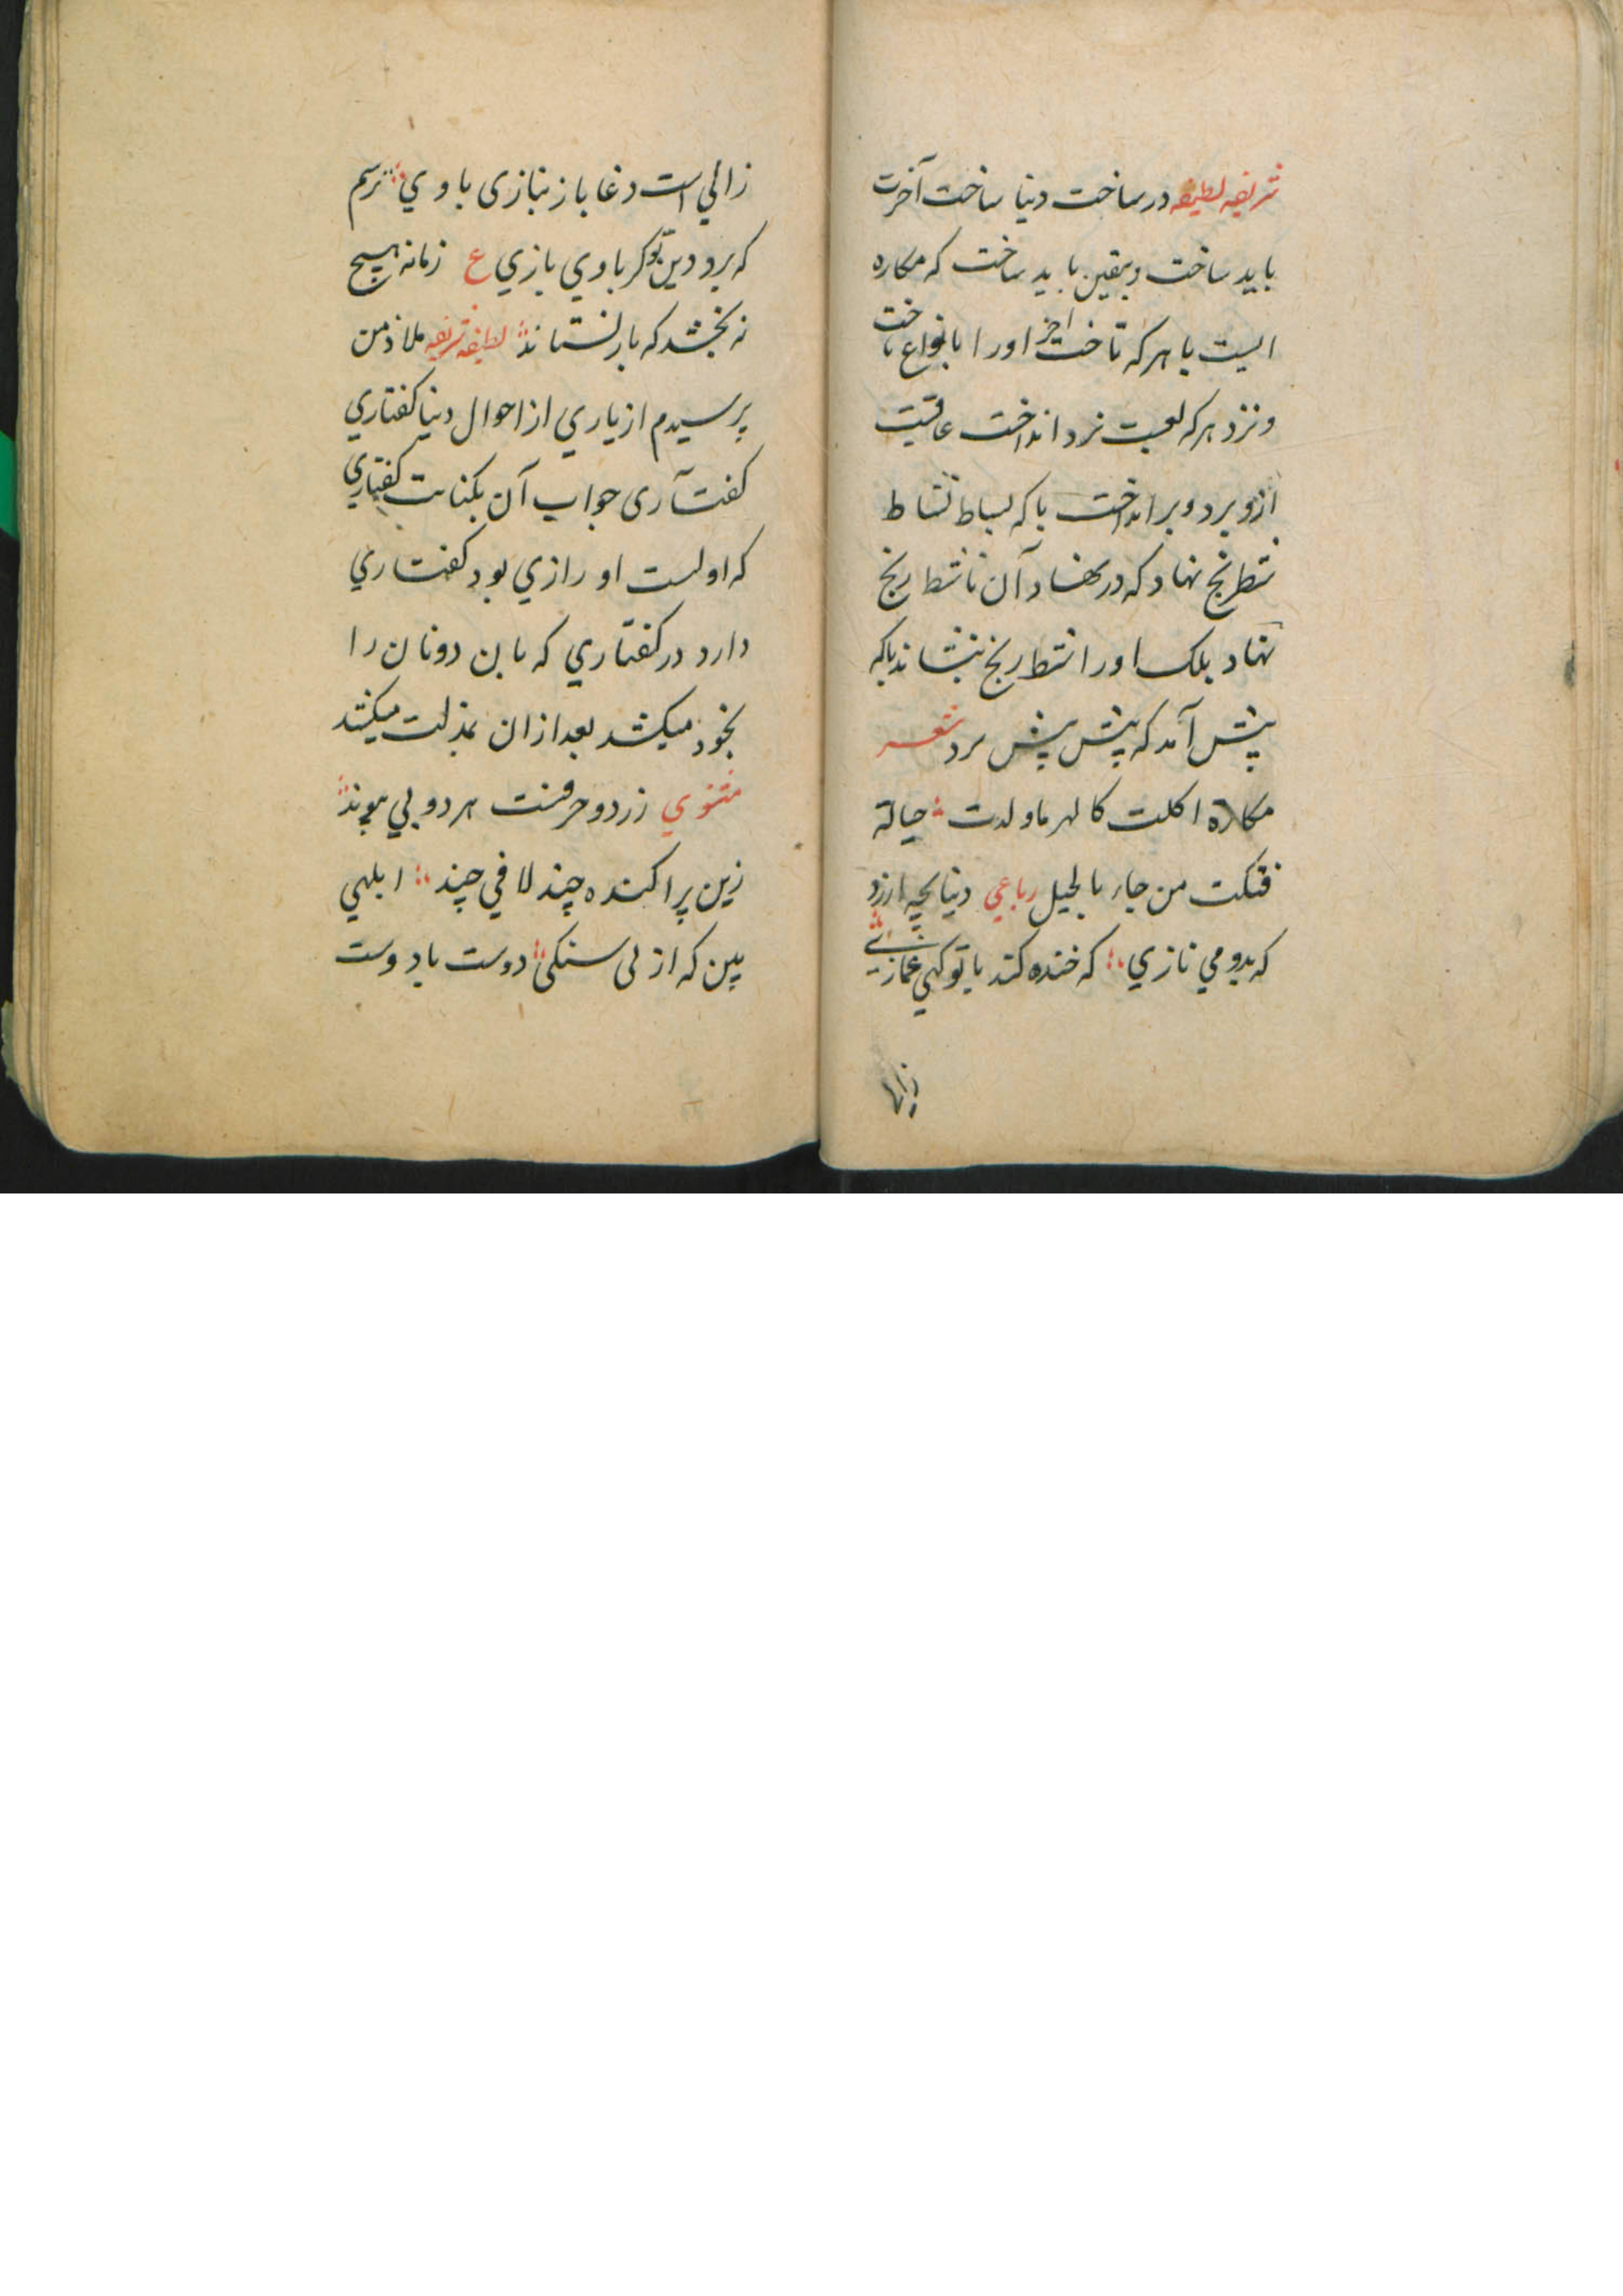 شریفه لطیفه در ساخت دنیا ساخت آخرت
باید ساخت و یقین باید ساخت که مکاره
ایست با هر که تاخت آخر او را بانواع باخت
و نزد هر که لعبت نرد انداخت عاقبت
ازو برد و برانداخت با که بساط نشاط
شطرنج نهاد که در نهاد آن ناشط رنج
نهاد بلک او را شط رنج ننشاند با که
پیش آمد که پیش پیش برد شعر
مکارة اکلت کالهر ماولدت حیالة
فتکت من جاء بالحیل رباعي دنیا بچه ارزد
که بدو مي نازي که خنده کند با تو کهي غمازي
زالي
زالي است دغا باز نبازی با وي ترسم
که برد دین تو کر با وي بازي ع زمانه هیچ
نه بخشد که باز نستاند لطیفه شریفه ملاذ من
پرسیدم از یاري از احوال دنیا کفتاري
کفت آری جواب آن بکنایت کفتاري
که اولست او رازي بود کفتاري
دارد در کفتاري که مابن دونان را
بخود میکشد بعد ازان بمذلت میکشد
مثنوي زر دو حرفست هر دو بي پیوند
زین پراکنده چند لافي چند ابلهي
بین که از پی سنکی دوست با دوست